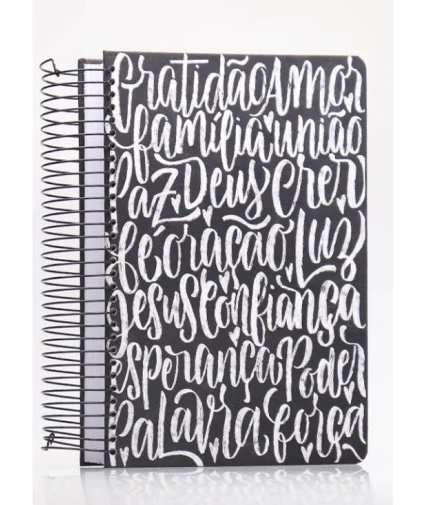 Gratidão Amor
família união
Paz Deus Crer
fé oração Luz
Jesus Confiança
esperança Poder
Palavra força